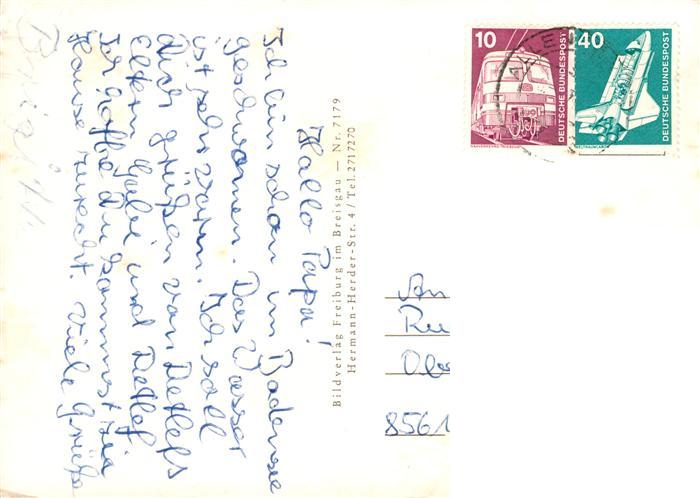 Hallo Papa!
Ich bin schon im Bodensee
geschwommen. Das Wasser
ist sehr warm. Ich soll
dich grüßen von Detlefs
Eltern, Gabi und Detlef
Ich hoffe du kommst zu
Hause zurecht. Viele Grüße
Bildverlag Freiburg im Breisgau — Nr. 7179
Hermann-Herder-Str. 4 / Tel. 2717270
10
DEUTSCHE BUNDESPOST
NAHVERKEHRS-TRIEBZUG
40
DEUTSCHE BUNDESPOST
WELTRAUMLABOR
An
Ru
Obe
8561